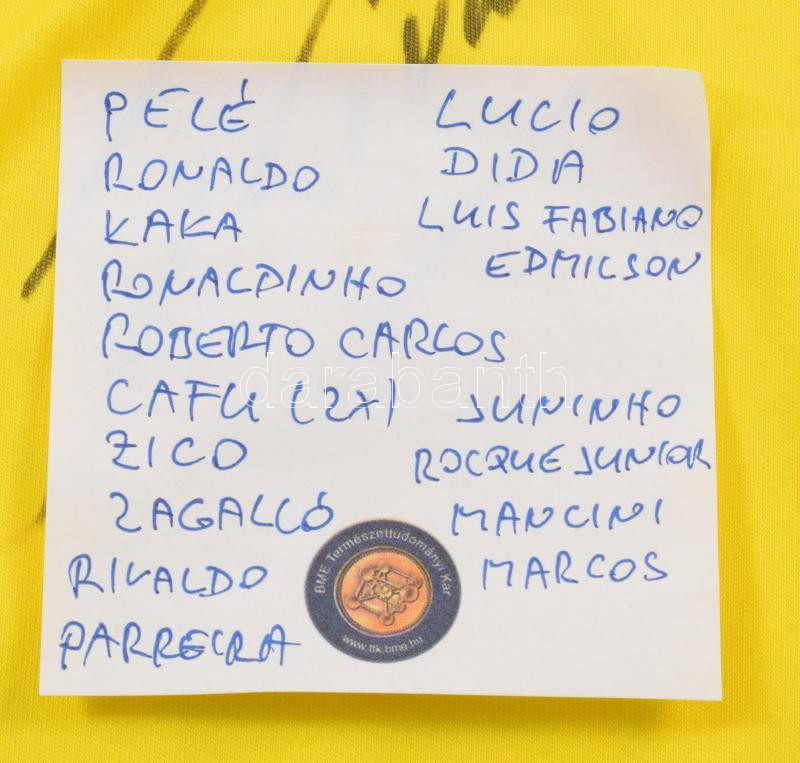 PELÉ
RONALDO
KAKA
RONALDINHO
ROBERTO CARLOS
CAFU (2x)
ZICO
ZAGALLÓ
RIVALDO
PARREIRA
LUCIO
DIDA
LUIS FABIANO
EDMILSON
JUNINHO
ROCQUE JUNIOR
MANCINI
MARCOS
BME Természettudományi Kar
www.ttk.bme.hu
darabanth